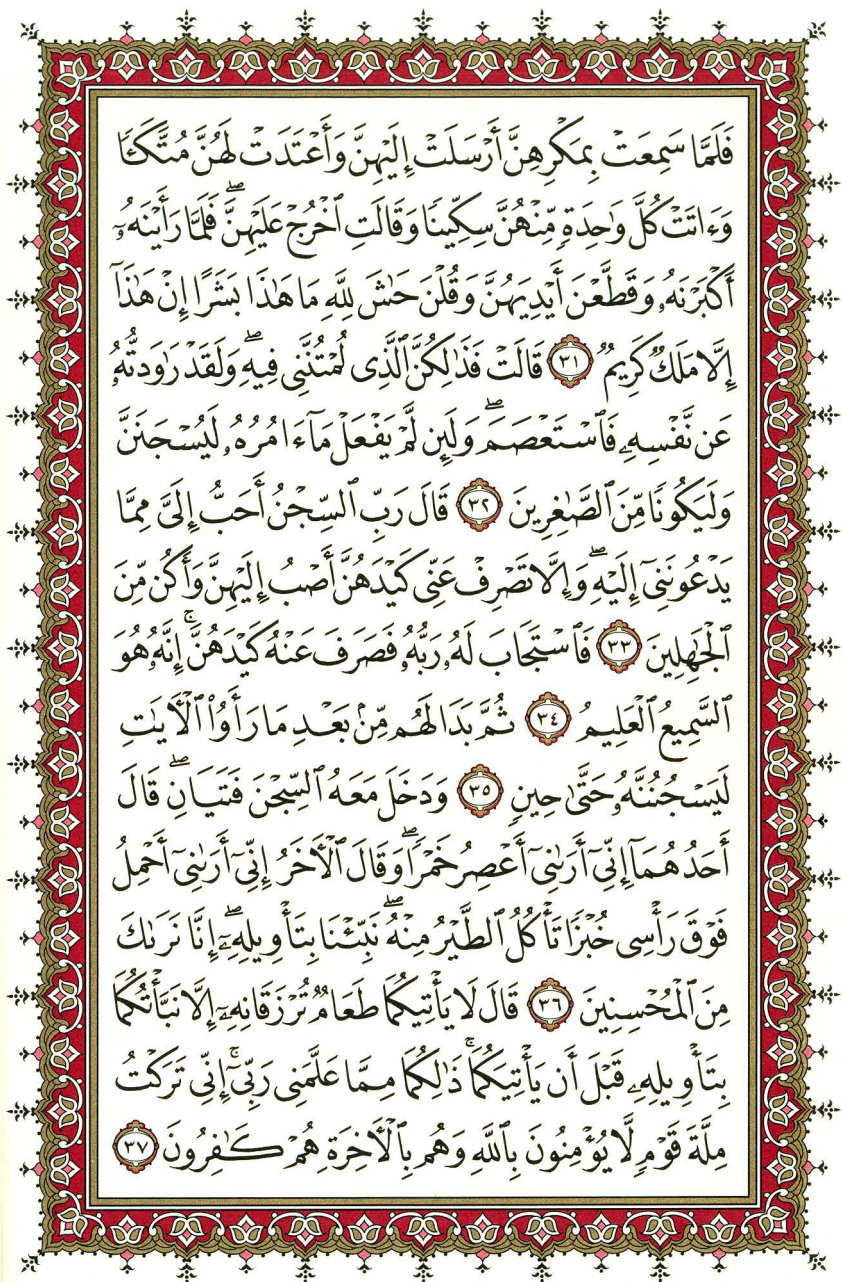 فَلَمَّا سَمِعَتْ بِمَكْرِهِنَّ أَرْسَلَتْ إِلَيْهِنَّ وَأَعْتَدَتْ لَهُنَّ مُتَّكَـًٔا
وَءَاتَتْ كُلَّ وَٰحِدَةٍ مِّنْهُنَّ سِكِّينًا وَقَالَتِ ٱخْرُجْ عَلَيْهِنَّ ۖ فَلَمَّا رَأَيْنَهُۥٓ
أَكْبَرْنَهُۥ وَقَطَّعْنَ أَيْدِيَهُنَّ وَقُلْنَ حَٰشَ لِلَّهِ مَا هَٰذَا بَشَرًا إِنْ هَٰذَآ
إِلَّا مَلَكٌ كَرِيمٌ ٣١ قَالَتْ فَذَٰلِكُنَّ ٱلَّذِى لُمْتُنَّنِى فِيهِ ۖ وَلَقَدْ رَٰوَدتُّهُۥ
عَن نَّفْسِهِۦ فَٱسْتَعْصَمَ ۖ وَلَئِن لَّمْ يَفْعَلْ مَآ ءَامُرُهُۥ لَيُسْجَنَنَّ
وَلَيَكُونًا مِّنَ ٱلصَّٰغِرِينَ ٣٢ قَالَ رَبِّ ٱلسِّجْنُ أَحَبُّ إِلَىَّ مِمَّا
يَدْعُونَنِىٓ إِلَيْهِ ۖ وَإِلَّا تَصْرِفْ عَنِّى كَيْدَهُنَّ أَصْبُ إِلَيْهِنَّ وَأَكُن مِّنَ
ٱلْجَٰهِلِينَ ٣٣ فَٱسْتَجَابَ لَهُۥ رَبُّهُۥ فَصَرَفَ عَنْهُ كَيْدَهُنَّ ۚ إِنَّهُۥ هُوَ
ٱلسَّمِيعُ ٱلْعَلِيمُ ٣٤ ثُمَّ بَدَا لَهُم مِّنۢ بَعْدِ مَا رَأَوُا۟ ٱلْـَٔايَٰتِ
لَيَسْجُنُنَّهُۥ حَتَّىٰ حِينٍ ٣٥ وَدَخَلَ مَعَهُ ٱلسِّجْنَ فَتَيَانِ ۖ قَالَ
أَحَدُهُمَآ إِنِّىٓ أَرَىٰنِىٓ أَعْصِرُ خَمْرًا ۖ وَقَالَ ٱلْـَٔاخَرُ إِنِّىٓ أَرَىٰنِىٓ أَحْمِلُ
فَوْقَ رَأْسِى خُبْزًا تَأْكُلُ ٱلطَّيْرُ مِنْهُ ۖ نَبِّئْنَا بِتَأْوِيلِهِۦٓ ۖ إِنَّا نَرَىٰكَ
مِنَ ٱلْمُحْسِنِينَ ٣٦ قَالَ لَا يَأْتِيكُمَا طَعَامٌ تُرْزَقَانِهِۦٓ إِلَّا نَبَّأْتُكُمَا
بِتَأْوِيلِهِۦ قَبْلَ أَن يَأْتِيَكُمَا ۚ ذَٰلِكُمَا مِمَّا عَلَّمَنِى رَبِّىٓ ۚ إِنِّى تَرَكْتُ
مِلَّةَ قَوْمٍ لَّا يُؤْمِنُونَ بِٱللَّهِ وَهُم بِٱلْـَٔاخِرَةِ هُمْ كَٰفِرُونَ ٣٧